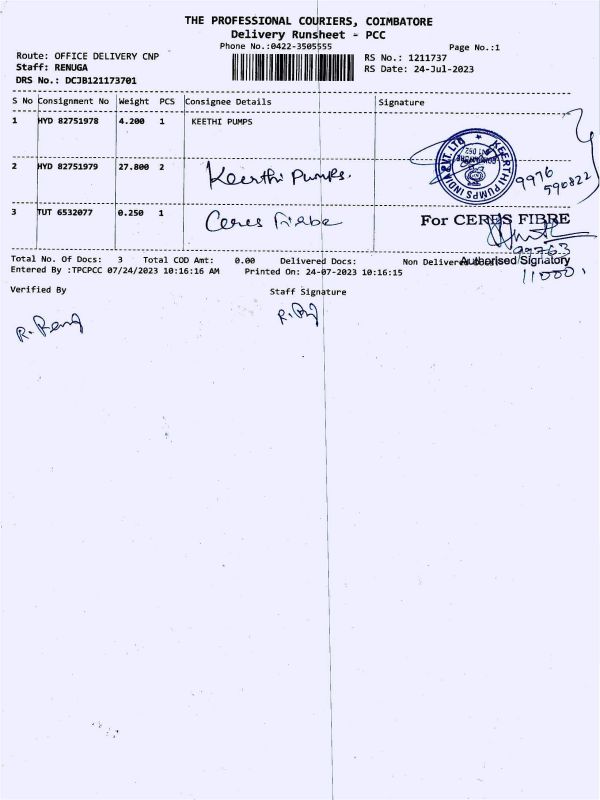 THE PROFESSIONAL COURIERS, COIMBATORE
Delivery Runsheet - PCC
Phone No.:0422-3505555 Page No.:1
Route: OFFICE DELIVERY CNP RS No.: 1211737
Staff: RENUGA RS Date: 24-Jul-2023
DRS No.: DCJB121173701
S No Consignment No Weight PCS Consignee Details Signature
1 HYD 82751978 4.200 1 KEETHI PUMPS
2 HYD 82751979 27.800 2 Keerthi Pumps.
KEERTHI PUMPS INDIA PVT. LTD
9976
590822
3 TUT 6532077 0.250 1 Ceres Fibre
For CERES FIBRE
99763
Total No. Of Docs: 3 Total COD Amt: 0.00 Delivered Docs: Non Delivered
Authorised Signatory
11000.
Entered By :TPCPCC 07/24/2023 10:16:16 AM Printed On: 24-07-2023 10:16:15
Verified By Staff Signature